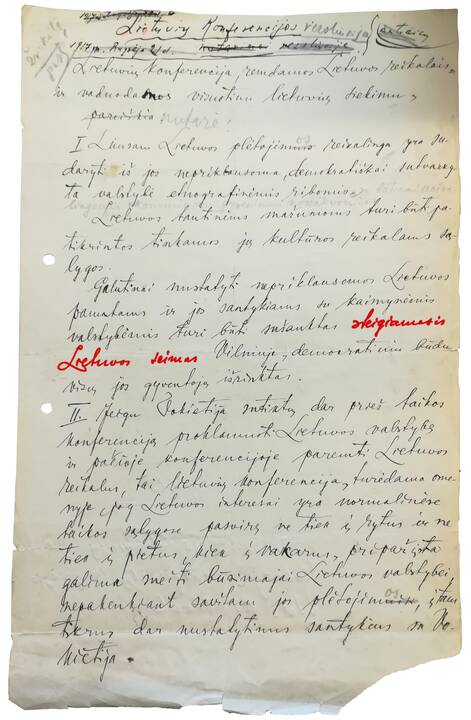 Lietuvių Konferencijos rezoliucija
1917 m. Rugsėjo 21 d.
Lietuvių konferencija remdamos Lietuvos reikalais
ir vaduodamos visuotinu lietuvių siekimu,
pareiškia nutarė:
I Laisvam Lietuvos plėtojimuisi reikalinga yra su
daryti iš jos nepriklausoma, demokratiškai sutvarky
ta valstybė etnografinėmis ribomis.
Lietuvos tautinėms mažumoms turi būti pa
tikrintos tinkamos jų kultūros reikalams są
lygos.
Galutinai nustatyti nepriklausomos Lietuvos
pamatams ir jos santykiams su kaimynėmis
valstybėmis turi būti sušauktas steigiamasis
Lietuvos seimas Vilniuje, demokratiniu būdu
visų jos gyventojų išrinktas.
II. Jeigu Vokietija sutiktų dar prieš taikos
konferenciją proklamuoti Lietuvos valstybę
ir pačioje konferencijoje paremti Lietuvos
reikalus, tai lietuvių konferencija, turėdama ome
nyje, jog Lietuvos interesai yra normalinėse
taikos sąlygose pasvirę ne tiek į rytus ar ne
tiek į pietus, kiek į vakarus, pripažįsta
galima sueiti būsimajai Lietuvos valstybei,
nepakenkiant savitam jos plėtojimuisi, į tam
tikrus dar nustatytinus santykius su Vo
kietija.